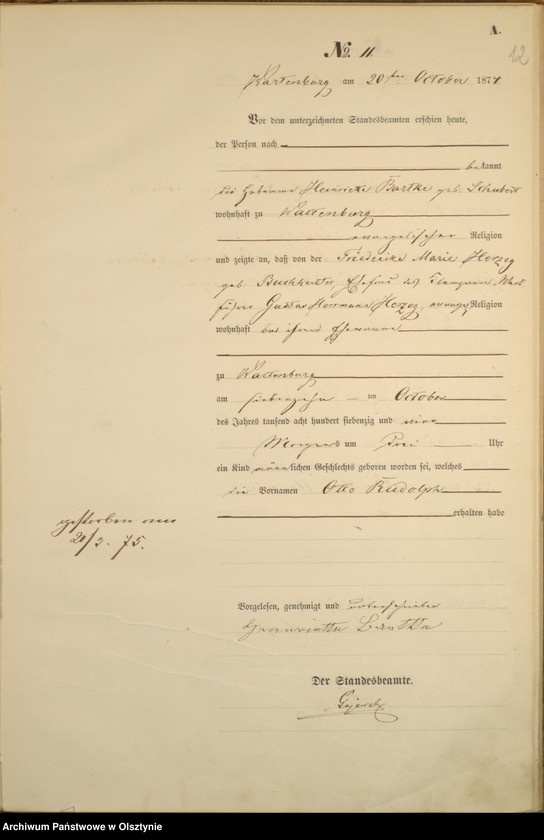 A.
12
No. 11.
Wartenburg am 20ten October 1874
Vor dem unterzeichneten Standesbeamten erschien heute,
der Person nach
bekannt
die Hebamme Henriette Bartke geb. Schubert
wohnhaft zu Wartenburg
evangelischer Religion
und zeigte an, daß von der Friederike Marie Herzog
geb. Ehefrau des
Gustav Herrmann Herzog, evang. Religion
wohnhaft bei ihrem Ehemanne
zu Wartenburg
am siebenzehn ten October
des Jahres tausend acht hundert siebenzig und vier
Morgens um Drei Uhr
ein Kind männlichen Geschlechts geboren worden sei, welches
die Vornamen Otto Rudolph
erhalten habe
gestorben am
20/3. 75.
Vorgelesen, genehmigt und unterschrieben
Henriette Bartke
Der Standesbeamte.
Archiwum Państwowe w Olsztynie